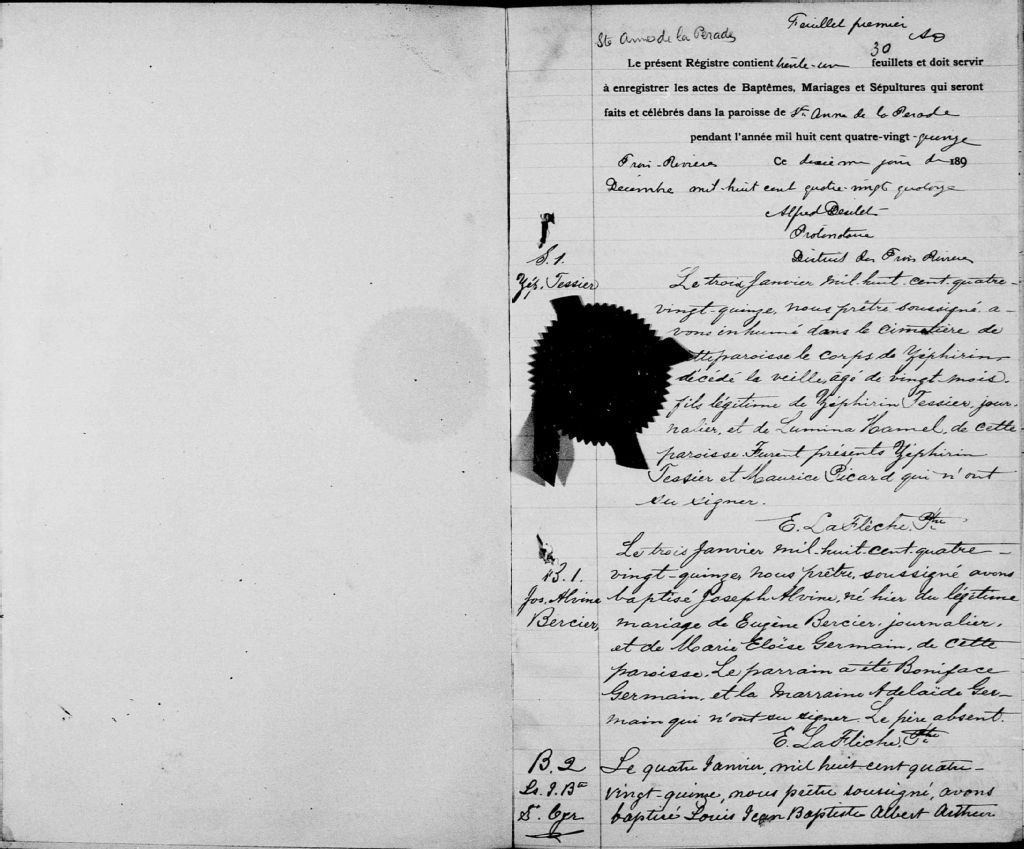 Feuillet premier
AD
Ste Anne de la Perade
Le présent Régistre contient trente-un 30 feuillets et doit servir
à enregistrer les actes de Baptêmes, Mariages et Sépultures qui seront
faits et célébrés dans la paroisse de Ste Anne de la Perade
pendant l'année mil huit cent quatre-vingt-quinze
Trois-Rivières Ce dixième jour de 189
Décembre mil-huit cent quatre-vingt quatorze
Alfred Desilets
Protonotaire
District des Trois Rivières
S. 1.
Zép. Tessier
Le trois Janvier mil-huit-cent-quatre-
vingt-quinze, nous prêtre soussigné a-
vons inhumé dans le cimetière de
cette paroisse le corps de Zéphirin,
décédé la veille, âgé de vingt-mois,
fils légitime de Zéphirin Tessier, jour-
nalier, et de Lumina Hamel, de cette
paroisse. Furent présents Zéphirin
Tessier et Maurice Picard qui n'ont
su signer.
E. LaFlèche, Ptre
B. 1.
Jos. Alvine
Bercier,
Le trois Janvier mil-huit-cent-quatre-
vingt-quinze, nous prêtre, soussigné avons
baptisé Joseph Alvine, né hier du légitime
mariage de Eugène Bercier, journalier,
et de Marie Eloïse Germain, de cette
paroisse. Le parrain a été Boniface
Germain, et la marraine Adelaïde Ger-
main qui n'ont su signer. Le père absent.
E. LaFlèche, Ptre
B. 2
Ls. J. Bte
St. Cyr
Le quatre Janvier, mil huit-cent quatre-
vingt-quinze, nous prêtre soussigné, avons
baptisé Louis Jean Baptiste Albert Arthur